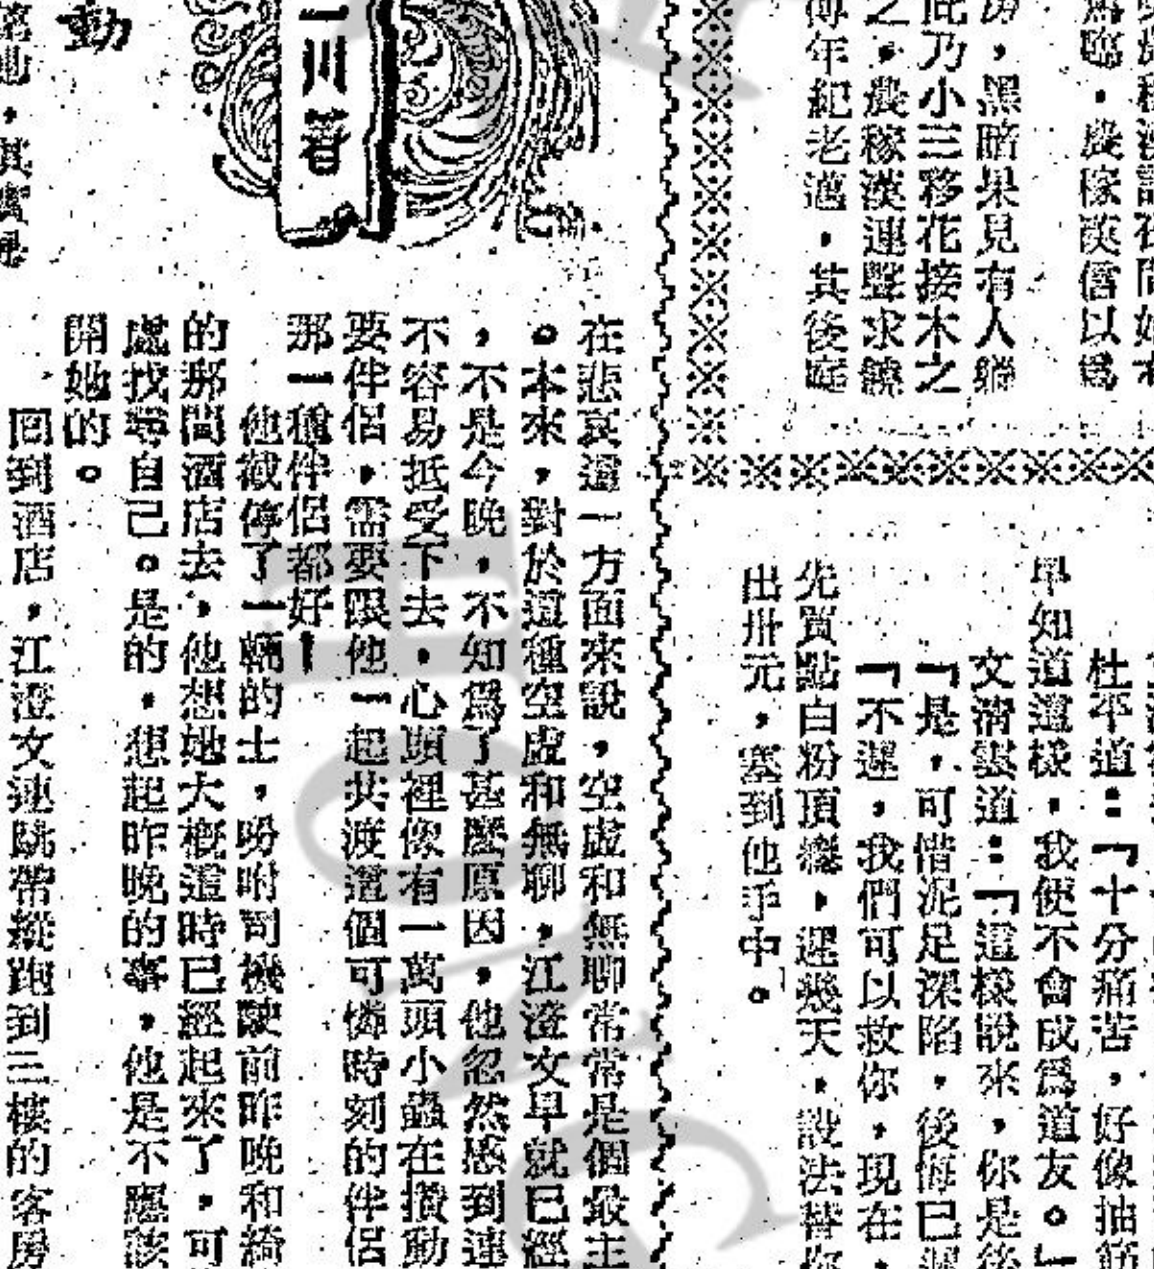 為臨，農稼漢信以爲
房，黑暗果見有人躺
此乃小三移花接木之
之，農稼漢連聲求饒
年紀老邁，其後庭
杜平道：「十分痛苦，好像抽筋
早知道這樣，我便不會成爲道友。」
文清雲道：「這樣說來，你是後
「是，可惜泥足深陷，後悔已遲
「不遲，我們可以救你，現在，
先買點白粉頂癮，遲幾天，設法替你
出卅元，塞到他手中。
一川著
動
在悲哀這一方面來說，空虛和無聊常常是個最主
。本來，對於這種空虛和無聊，江澄文早就已經
，不是今晚，不知爲了甚麼原因，他忽然感到連
不容易抵受下去，心頭裡像有一萬頭小蟲在攢動
要伴侶，需要跟他一起共渡這個可憐時刻的伴侶
那一種伴侶都好！
他截停了一輛的士，吩咐司機駛前昨晚和綺
的那間酒店去，他想她大概這時已經起來了，可
處找尋自己。是的，想起昨晚的事，他是不應該
開她的。
回到酒店，江澄文連跳帶縱跑到三樓的客房
HONG